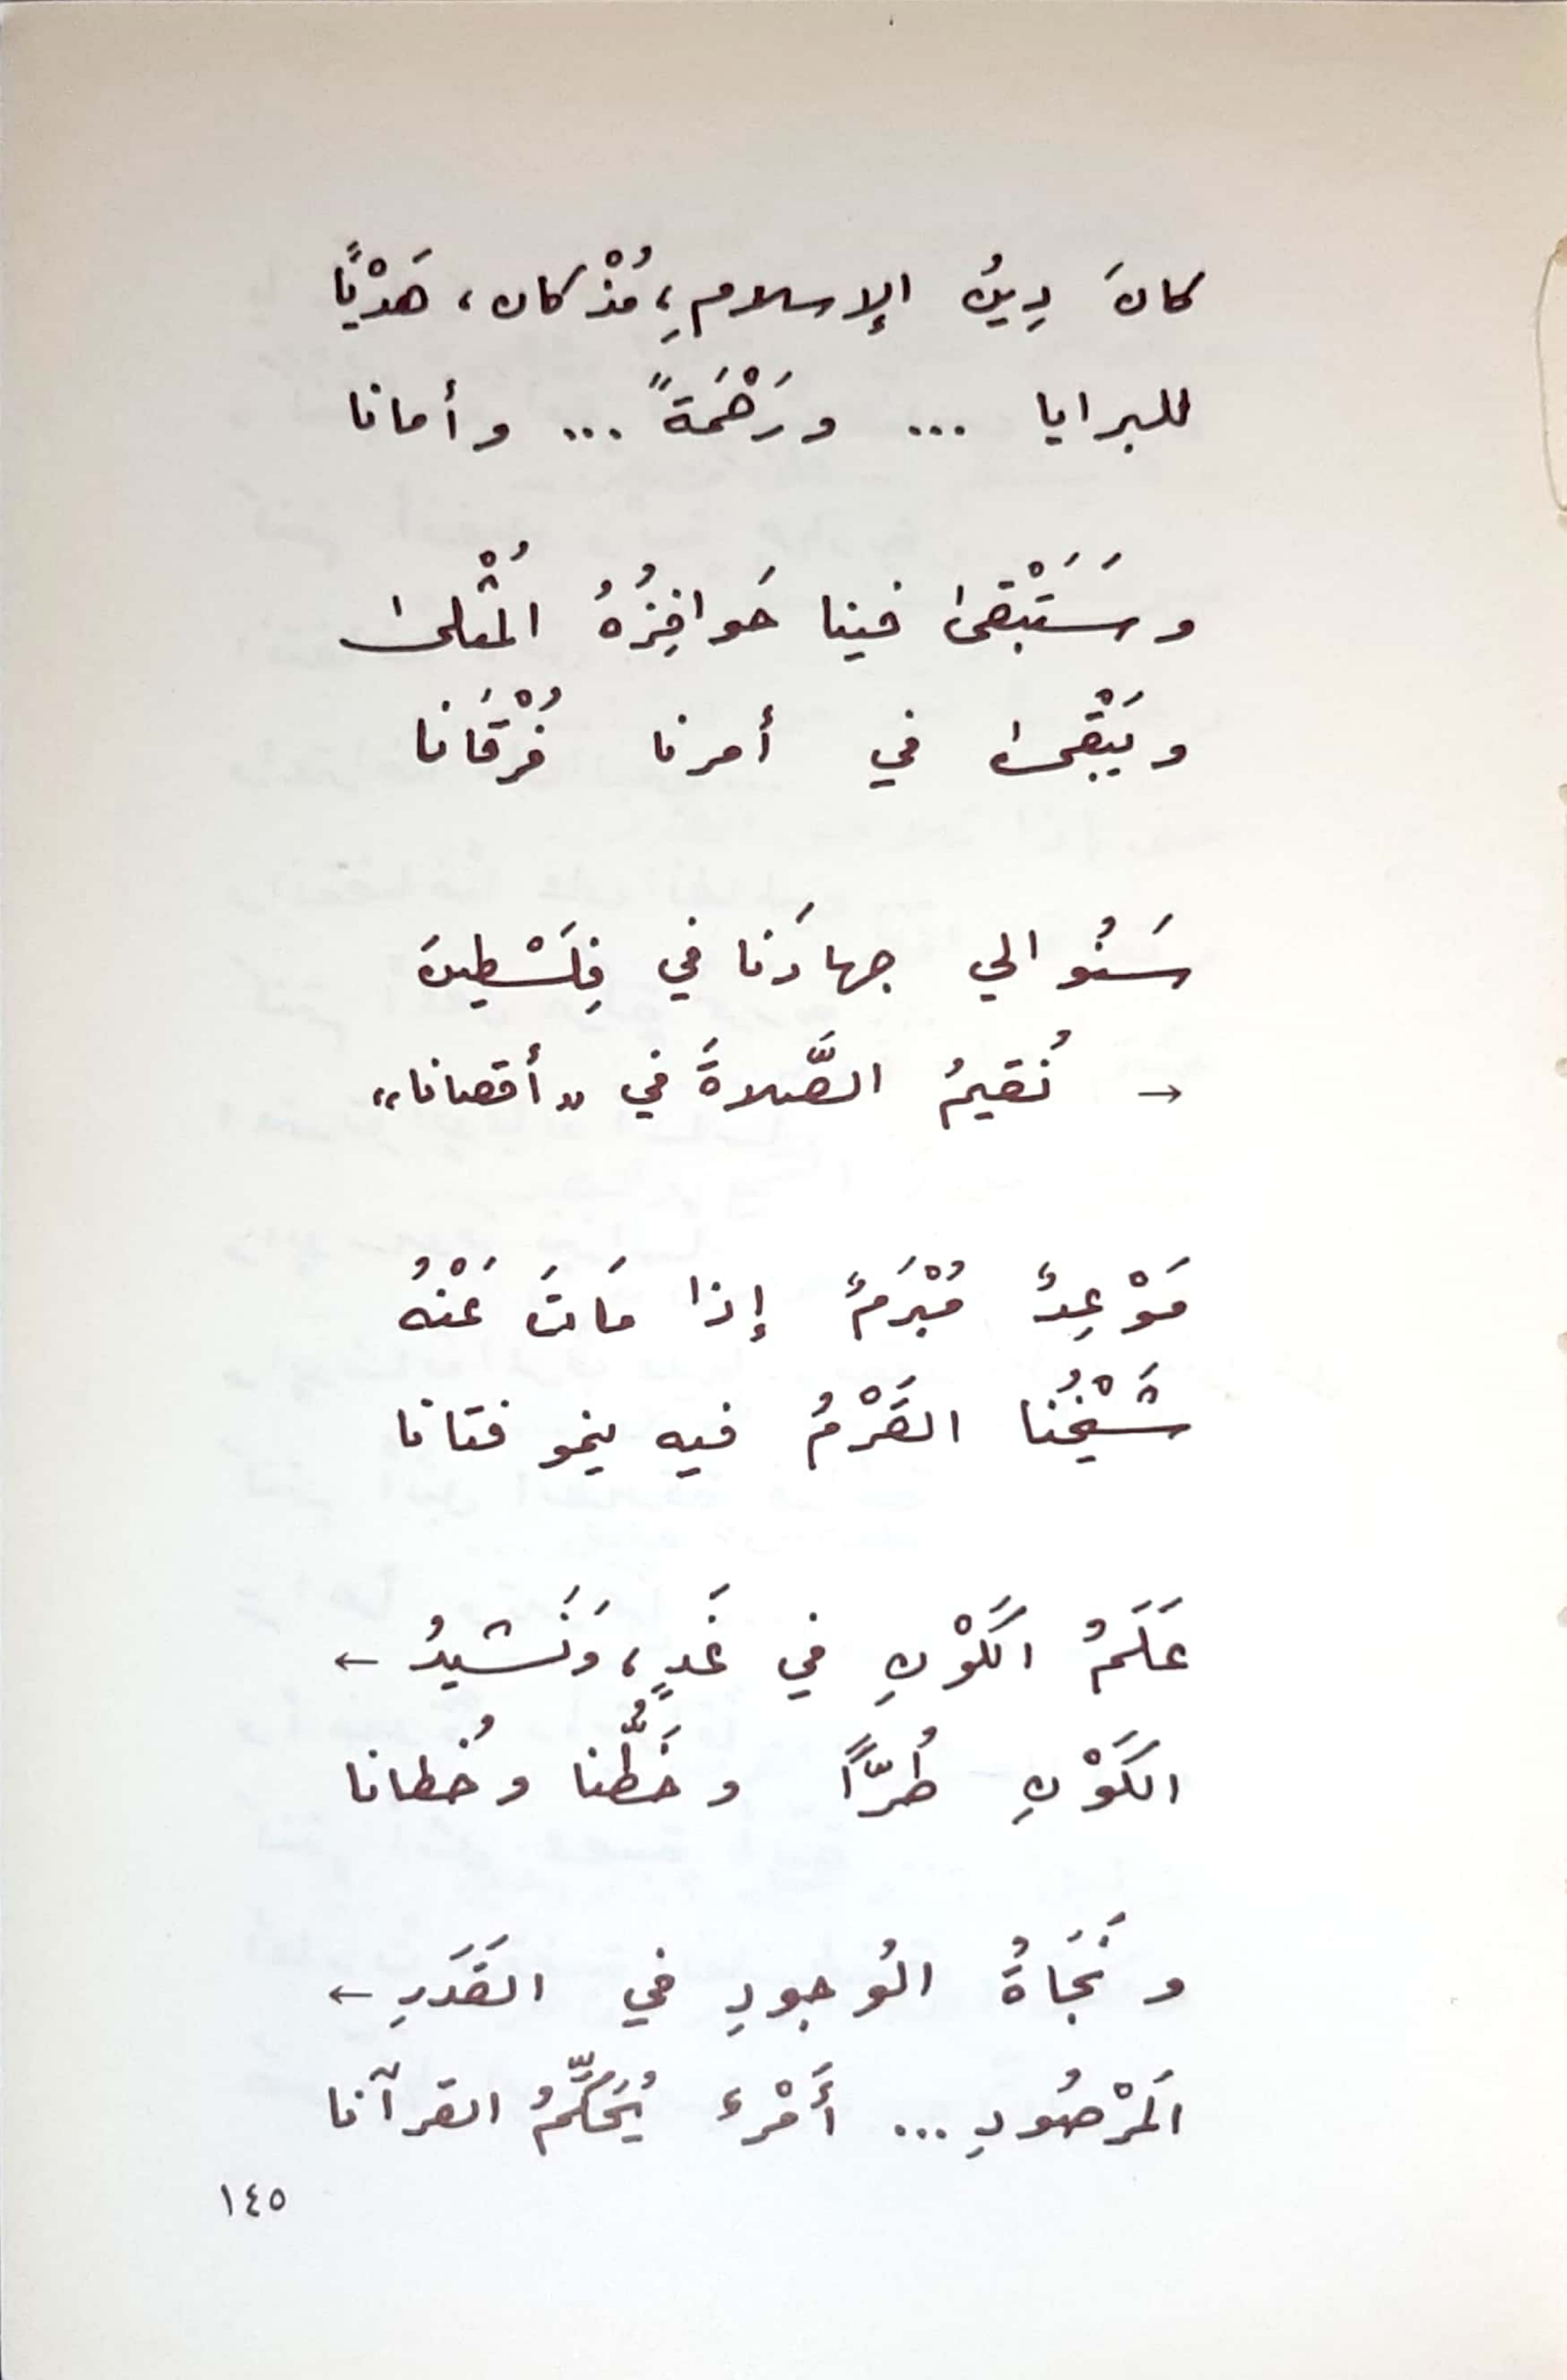 كانَ دِينُ الإسلامِ، مُذْ كان، هَدْيًا
للبرايا ... ورَحْمَةً ... وأمانا
وسَتَبْقىٰ فينا حَوافِزُهُ المُثْلىٰ
ويَبْقىٰ في أمرنا فُرْقَانا
سَنُوالي جهادَنا في فِلَسْطينَ
→ نُقيمُ الصَّلاةَ في «أقصانا»
مَوْعِدٌ مُبْرَمٌ إذا مَاتَ عَنْهُ
شَيْخُنا القَرْمُ فيه ينمو فتانا
عَلَمُ الكَوْنِ في غَدٍ، وَنَشيدُ ←
الكَوْنِ طُرًّا وخَطُّنا وخُطانا
ونَجَاةُ الوُجودِ في القَدَرِ ←
المَرْصُودِ ... أَمْرٌ يُحَكِّمُ القرآنا
١٤٥